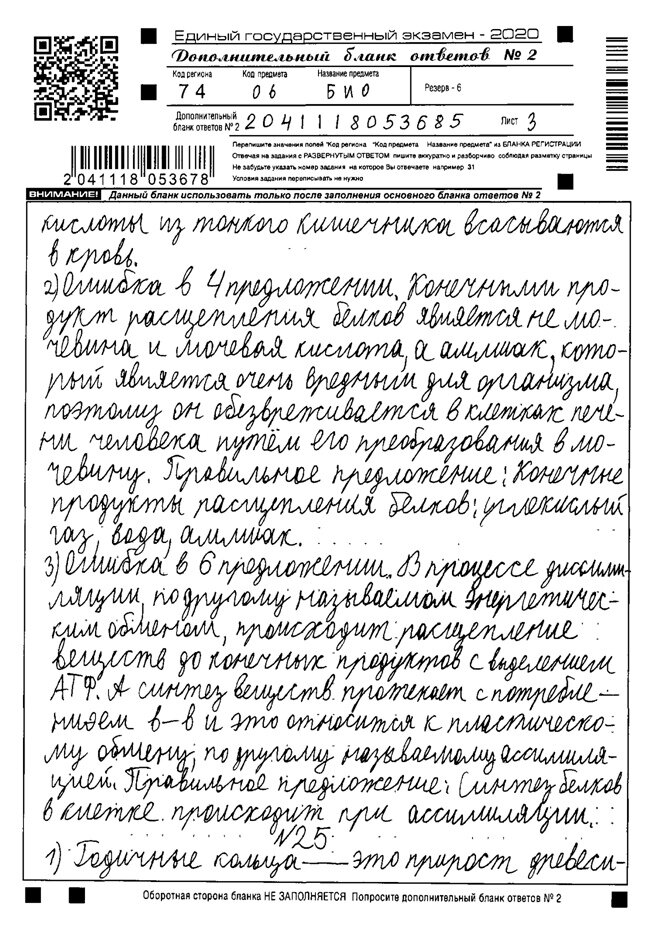 Единый государственный экзамен - 2020
Дополнительный бланк ответов № 2
Код региона Код предмета Название предмета
74 06 БИО
Резерв - 6
Дополнительный бланк ответов № 2 2041118053685 Лист 3
Перепишите значения полей "Код региона "Код предмета Название предмета" из БЛАНКА РЕГИСТРАЦИИ
Отвечая на задания с РАЗВЕРНУТЫМ ОТВЕТОМ пишите аккуратно и разборчиво соблюдая разметку страницы
Не забудьте указать номер задания на которое Вы отвечаете например 31
Условия задания переписывать не нужно
2 041118 053678
ВНИМАНИЕ! Данный бланк использовать только после заполнения основного бланка ответов № 2
кислоты из тонкого кишечника всасываются
в кровь.
2) Ошибка в 4 предложении. Конечными про-
дукт расщепления белков является не мо-
чевина и мочевая кислота, а аммиак, кото-
рый является очень вредным для организма,
поэтому он обезвреживается в клетках пече-
ни человека путём его преобразования в мо-
чевину. Правильное предложение: Конечные
продукты расщепления белков: углекислый
газ, вода, аммиак.
3) Ошибка в 6 предложении. В процессе диссими-
ляции, по другому называемом энергетичес-
ким обменом, происходит расщепление
веществ до конечных продуктов с выделением
АТФ. А синтез веществ протекает с потребле-
нием в-в и это относится к пластическо-
му обмену, по другому называемому ассимиля-
цией. Правильное предложение: Синтез белков
в клетке происходит при ассимиляции.
N25
1) Годичные кольца — это прирост древеси-
Оборотная сторона бланка НЕ ЗАПОЛНЯЕТСЯ Попросите дополнительный бланк ответов № 2